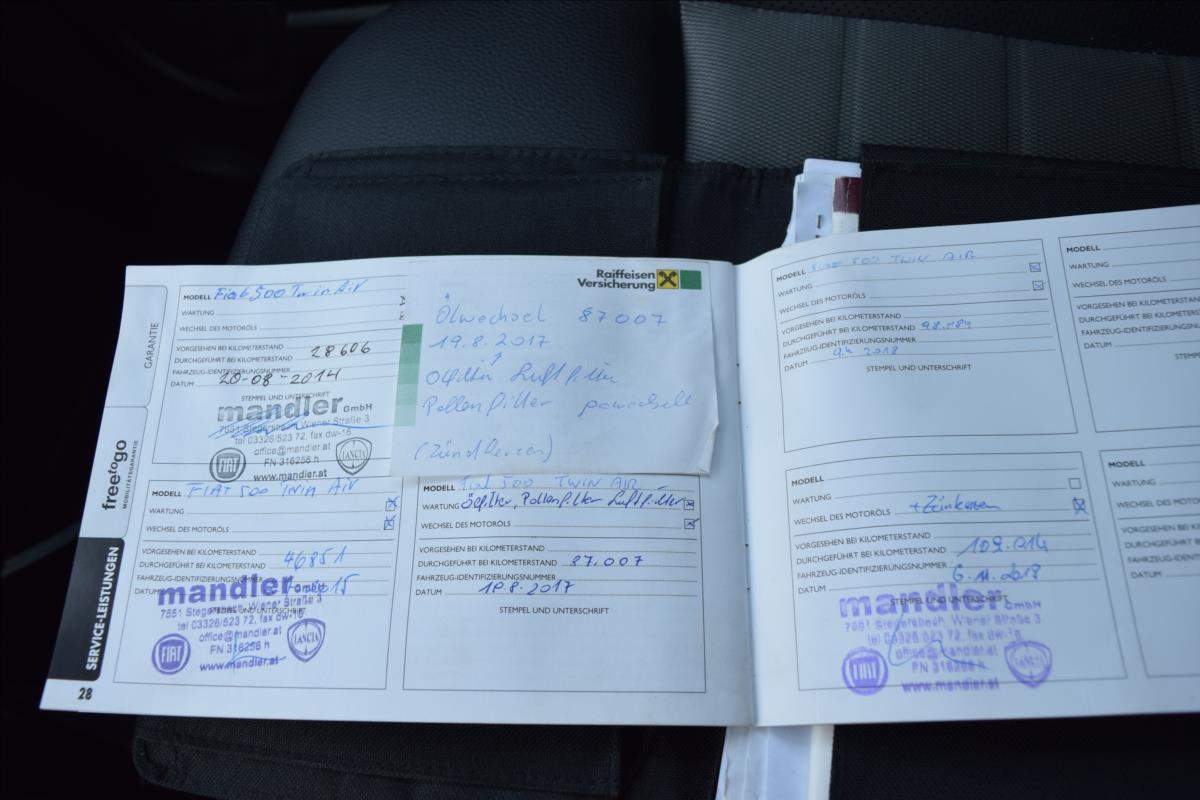 GARANTIE
freetogo
MOBILITÄTSGARANTIE
SERVICE-LEISTUNGEN
28
MODELL Fiat 500 Twin Air
WARTUNG
WECHSEL DES MOTORÖLS
VORGESEHEN BEI KILOMETERSTAND
DURCHGEFÜHRT BEI KILOMETERSTAND 28606
FAHRZEUG-IDENTIFIZIERUNGSNUMMER
DATUM 20-08-2014
STEMPEL UND UNTERSCHRIFT
mandler GmbH
7551 Stegersbach, Wiener Straße 3
tel 03326/523 72, fax dw-16
office@mandler.at
FN 316256 h
www.mandler.at
FIAT
LANCIA
Raiffeisen
Versicherung
Ölwechsel 87007
19.8.2017
Ölfilter Luftfilter
Pollenfilter
MODELL FIAT 500 TWIN AIR
WARTUNG
WECHSEL DES MOTORÖLS
VORGESEHEN BEI KILOMETERSTAND
DURCHGEFÜHRT BEI KILOMETERSTAND 46851
FAHRZEUG-IDENTIFIZIERUNGSNUMMER
DATUM
STEMPEL UND UNTERSCHRIFT
mandler GmbH
7551 Stegersbach, Wiener Straße 3
tel 03326/523 72, fax dw-16
office@mandler.at
FN 316256 h
www.mandler.at
FIAT
LANCIA
MODELL Fiat 500 TWIN AIR
WARTUNG Ölfilter, Pollenfilter Luftfilter
WECHSEL DES MOTORÖLS
VORGESEHEN BEI KILOMETERSTAND
DURCHGEFÜHRT BEI KILOMETERSTAND 87.007
FAHRZEUG-IDENTIFIZIERUNGSNUMMER
DATUM 19.8.2017
STEMPEL UND UNTERSCHRIFT
MODELL Fiat 500 TWIN AIR
WARTUNG
WECHSEL DES MOTORÖLS
VORGESEHEN BEI KILOMETERSTAND
DURCHGEFÜHRT BEI KILOMETERSTAND
FAHRZEUG-IDENTIFIZIERUNGSNUMMER
DATUM 2018
STEMPEL UND UNTERSCHRIFT
MODELL
WARTUNG
WECHSEL DES MOTORÖLS
VORGESEHEN BEI KILOMETERSTAND
DURCHGEFÜHRT BEI KILOMETERSTAND 109.014
FAHRZEUG-IDENTIFIZIERUNGSNUMMER
DATUM 6.11.2018
STEMPEL UND UNTERSCHRIFT
mandler GmbH
7551 Stegersbach, Wiener Straße 3
tel 03326/523 72, fax dw-16
office@mandler.at
FN 316256 h
www.mandler.at
FIAT
LANCIA
MODELL
WARTUNG
WECHSEL DES MOTORÖLS
VORGESEHEN BEI KILOMETERSTAND
DURCHGEFÜHRT BEI KILOMETER
FAHRZEUG-IDENTIFIZIERUNGS
DATUM
MODELL
WARTUNG
WECHSEL DES MOTORÖLS
VORGESEHEN BEI KILOMETERS
DURCHGEFÜHRT BEI KILOME
FAHRZEUG-IDENTIFIZIERUN
DATUM